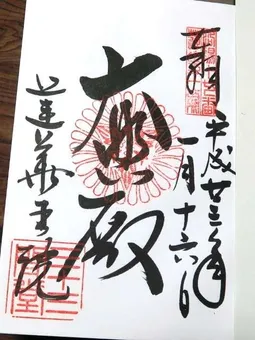 奉拝
平成廿三年
一月十六日
大悲殿
蓮華王院